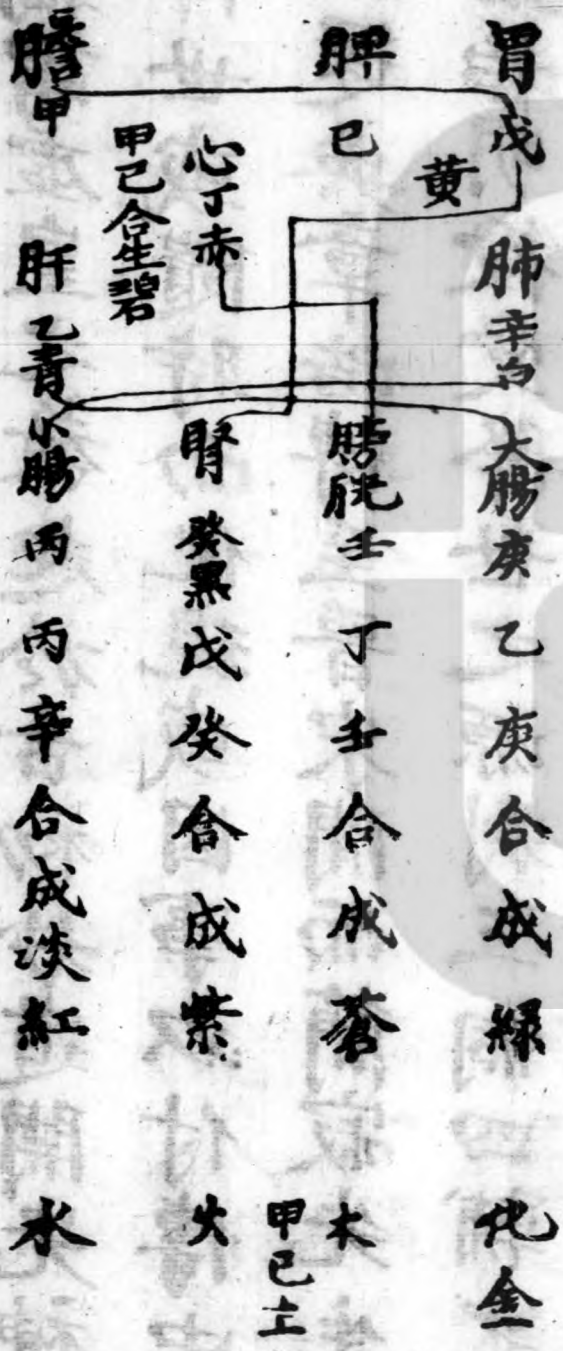 胃戊
肺辛白
大腸庚 乙庚合成緑 化金
脾已 黄
膀胱壬 丁壬合成蒼 木
甲已土
心丁赤
腎癸黒 戊癸合成紫 火
甲已合生碧
膽甲
肝乙青
小腸丙 丙辛合成淡紅 水